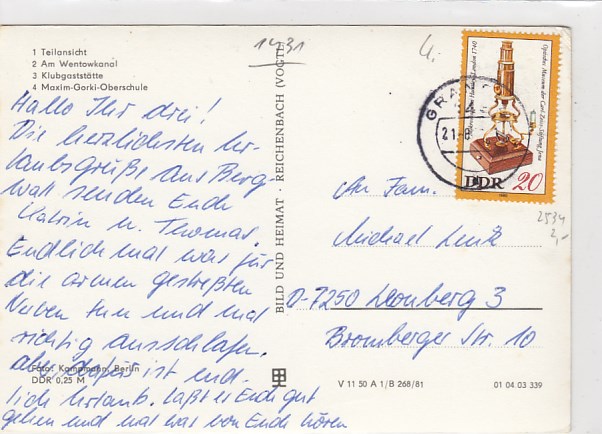 1 Teilansicht
2 Am Wentowkanal
3 Klubgaststätte
4 Maxim-Gorki-Oberschule
Hallo Ihr drei!
Die herzlichsten Ur-
laubsgrüße aus Berg
wall senden Euch
Katrin u. Thomas.
Endlich mal was für
die armen gestreßten
Nerven tun und mal
richtig ausschlafen,
aber dafür ist end-
lich Urlaub. Laßt es Euch gut
gehen und mal was von Euch hören
Foto: Kampmann, Berlin
DDR 0,25 M
BILD UND HEIMAT · REICHENBACH (VOGTL)
V 11 50 A 1/B 268/81
01 04 03 339
1431
GRAN
21.8
London 1740
Optisches Museum der Carl-Zeiss-Stiftung Jena
DDR 20
2534
2,-
An Fam.
Michael
D-7250 Leonberg 3
Bromberger Str. 10